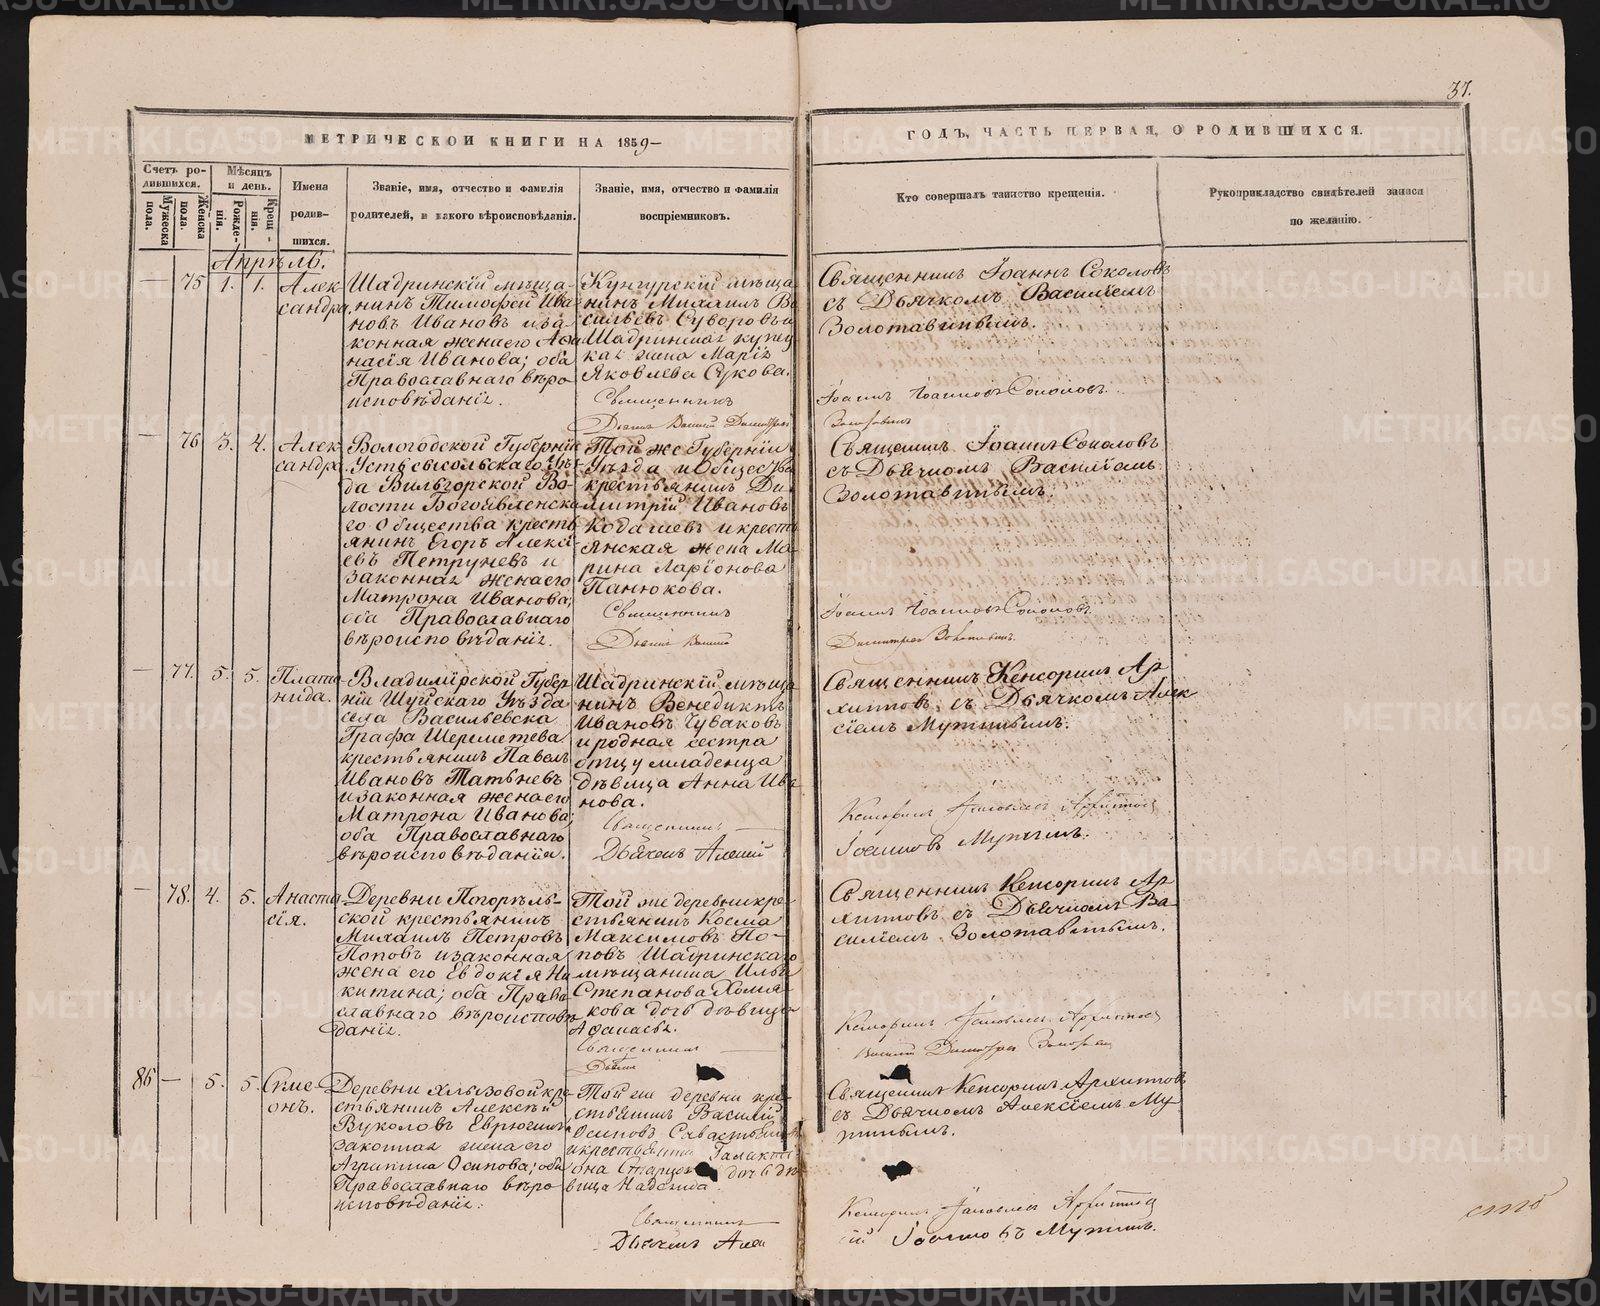 37.
МЕТРИЧЕСКОЙ КНИГИ НА 1859
ГОДЪ, ЧАСТЬ ПЕРВАЯ, О РОДИВШИХСЯ.
Счетъ ро-
дившихся.
Мужеска
пола.
Женска
пола.
Мѣсяцъ
и день.
Рожде-
нія.
Крещ-
нія.
Имена
родив-
шихся.
Званіе, имя, отчество и фамилія
родителей, и какого вѣроисповѣданія.
Званіе, имя, отчество и фамилія
воспріемниковъ.
Кто совершалъ таинство крещенія.
Рукоприкладство свидѣтелей записи
по желанію.
Апрѣль.
75 1. 1.
Алек-
сандра.
Шадринскій мѣща-
нинъ Тимофей Ива-
новъ Ивановъ и за-
конная жена его Афа
насія Иванова; оба
Православнаго вѣро
исповѣданія.
Кунгурскій мѣща
нинъ Михаилъ Ва
сильевъ Суворовъ и
Шадринская купец
кая жена Марія
Яковлева Сукова.
Священникъ
Священникъ Іоаннъ Соколовъ
съ Дьячкомъ Василіемъ
Золотавинымъ.
Іоаннъ Іоанновъ Соколовъ.
76 3. 4.
Алек
сандра.
Вологодской Губерніи
Устьсысольскаго Уѣз-
да Вильгорской Во-
лости Богоявленска
го Общества кресть
янинъ Егоръ Алексѣ-
евъ Петруневъ и
законная жена его
Матрона Иванова;
оба Православнаго
вѣроисповѣданія.
Той же Губерніи
Уѣзда и Общества
крестьянинъ Ди-
митрій Ивановъ
Кодашевъ и кресть
янская жена Ма-
рина Ларіонова
Панюкова.
Священникъ
Дьячекъ Василій
Священникъ Іоаннъ Соколовъ
съ Дьячкомъ Василіемъ
Золотавинымъ.
Іоаннъ Іоанновъ Соколовъ.
77. 5. 5.
Плато
нида.
Владимірской Губер
ніи Шуйскаго Уѣзда
села Васильевска
Графа Шереметева
крестьянинъ Павелъ
Ивановъ Татьневъ
и законная жена его
Матрона Иванова;
оба Православнаго
вѣроисповѣданія.
Шадринскій мѣща
нинъ Венедиктъ
Ивановъ Чуваковъ
и родная сестра
отцу младенца
дѣвица Анна Ива
нова.
Священникъ
Дьячекъ Алексій
Священникъ Кенсоринъ Ар
хиповъ съ Дьячкомъ Алек
сіемъ Мутинымъ.
Іоанновъ Мутинъ.
78. 4. 5.
Анаста
сія.
Деревни Погорѣль-
ской крестьянинъ
Михаилъ Петровъ
Поповъ и законная
жена его Евдокія Ни
китина; оба Право
славнаго вѣроисповѣ
данія.
Той же деревни кре
стьянинъ Косма
Максимовъ По-
повъ Шадринскаго
мѣщанина Ильи
Степанова Хомя-
кова дочь дѣвица
Афанасья.
Священникъ
Священникъ Кенсоринъ Ар
хиповъ съ Дьячкомъ Ва
силіемъ Золотавинымъ.
86 5. 5.
Симе-
онъ.
Деревни Хлызовой кре
стьянинъ Алексѣй
Вуколовъ Еврюгинъ
законная жена его
Агрипина Осипова; оба
Православнаго вѣро
исповѣданія.
Той же деревни кре
стьянинъ Василій
Осиповъ
и крестьянина Галакті
она дочь дѣ
вица Надежда.
Священникъ
Дьячекъ Алек
Священникъ Кенсоринъ Архиповъ
съ Дьячкомъ Алексіемъ Му
тинымъ.
Іоанновъ Мутинъ.